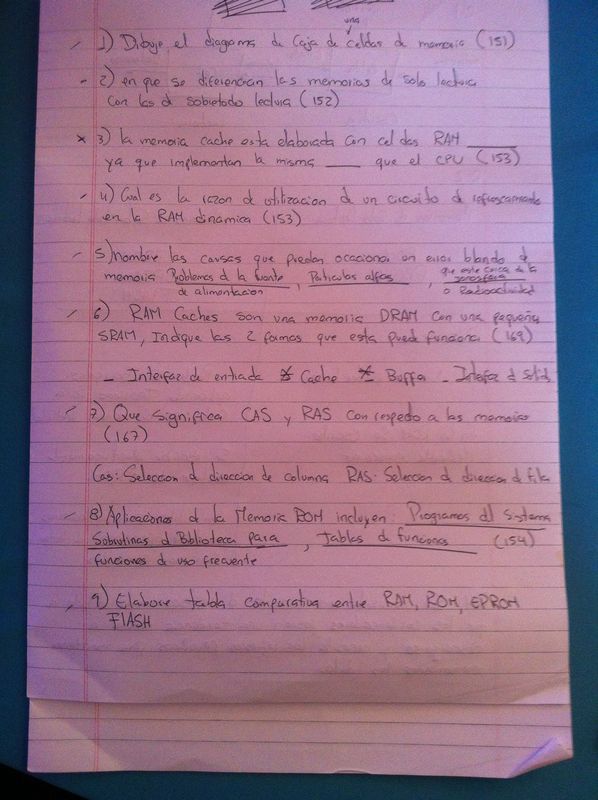 1) Dibuje el diagrama de Caja de una celdas de memoria (151)
2) en que se diferencian las memorias de solo lectura
con las d sobretodo lectura (152)
* 3) la memoria cache esta elaborada con celdas RAM ____
ya que implementan la misma ____ que el CPU (153)
4) Cual es la razon de utilizacion d un circuito de refrescamiento
en la RAM dinamica (153)
5) nombre las causas que puedan ocasionar un error blando d
memoria Problemas d la fuente de alimentacion, Particulas alfas, que este cerca de la
o Radioactividad
6) RAM Caches son una memoria DRAM con una pequeña
SRAM, Indique las 2 formas que esta puede funcionar (169)
- Interfaz de entrada * Cache * Buffer - Interfaz d Salida
7) Que significa CAS y RAS con respecto a las memorias
(167)
Cas: Seleccion d direccion de columna RAS: Seleccion d direccion d fila
8) Aplicaciones d la Memoria ROM incluyen: Programas del Sistema
Sobrutinas d Biblioteca para, Tablas de funciones (154)
funciones de uso frecuente
9) Elabore tabla comparativa entre RAM, ROM, EPROM
FlASH